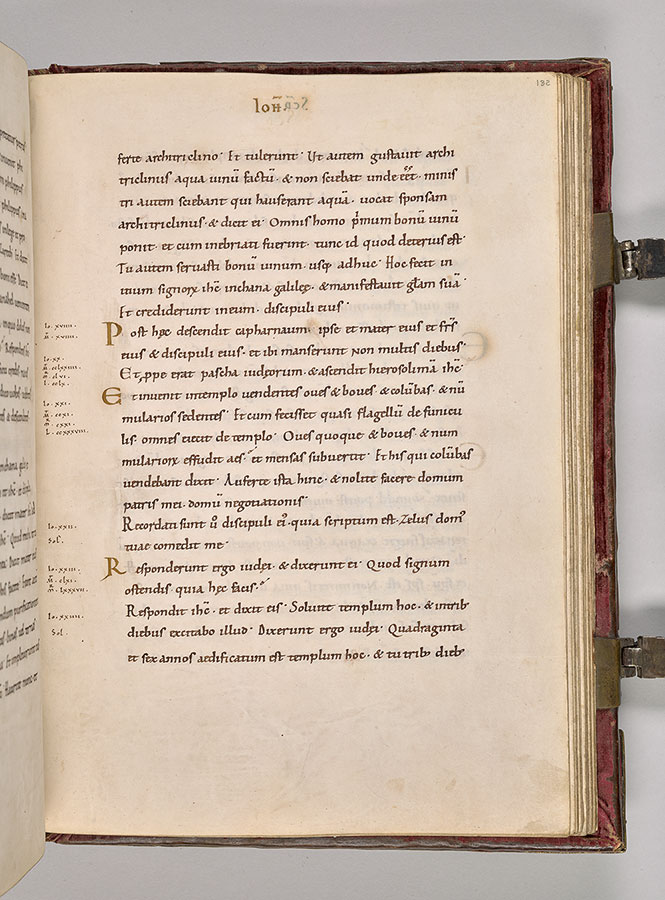 IOHÑ
181
ferte architriclino. Et tulerunt. Ut autem gustauit archi
triclinus aquā uinū factū. & non sciebat unde eēt. minis
tri autem sciebant qui hauserant aquā. uocat sponsum
architriclinus. & dicit ei. Omnis homo p̄mum bonū uinū
ponit. et cum inebriati fuerint. tunc id quod deterius est.
Tu autem seruasti bonū uinum. usq; adhuc. Hoc fecit in
itium signorꝝ ihc̄ inchana galileę. & manifestauit glam̄ suā.
Et crediderunt ineum. discipuli eius.
Post hęc descendit capharnaum. ipse et mater eius et frs̄
eius & discipuli eius. et ibi manserunt non multis diebus.
Et ꝓpe erat pascha iudęorum. & ascendit hierosolimā ihc̄
Et inuenit intemplo uendentes oues & boues & colūbas. & nū
mularios sedentes. Et cum fecisset quasi flagellū de funicu
lis. omnes eiecit de templo. Oues quoque & boues. & num
mulariorꝝ effudit aes. et mensas subuertit. Et his qui colūbas
uendebant dixit. Auferte ista hinc. & nolite facere domum
patris mei. domū negotiationis.
Recordati sunt u̅ discipuli ei'. quia scriptum est. Zelus dom'
tuae comedit me.
Responderunt ergo iudęi. & dixerunt ei. Quod signum
ostendis. quia hęc facis.
Respondit ihc̄. et dixit eis. Soluite templum hoc. & intrib;
diebus excitabo illud. Dixerunt ergo iudęi. Quadraginta
et sex annos aedificatum est templum hoc. & tu trib; dieb;
Io. xviiii.
M̄. xviiii.
Io. xx.
L̄. cclx.
Io. xxi.
M̄. ccxi.
L̄. ccxxxviii.
Io. xxii.
Sol.
Io. xxiii.
M̄. clxi.
M̄. lxxxvii.
Io. xxiiii.
Sol.